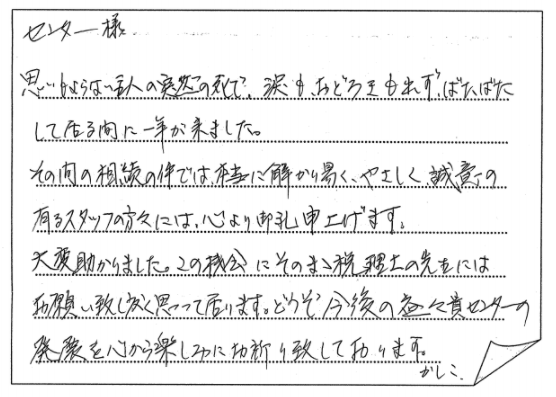 センター様
思いもよらない主人の突然の死で、涙も、おどろきも出ず、ばたばた
して居る間に一年が来ました。
その間の相続の件では、本当に解かり易く、やさしく、誠意の
有るスタッフの方々には、心より御礼申上げます。
大変助かりました。この機会にそのまゝ税理士の先生には
お願い致し度く思って居ります。どうぞ今後の益々貴センターの
発展を心から楽しみにお祈り致しております。
かしこ.